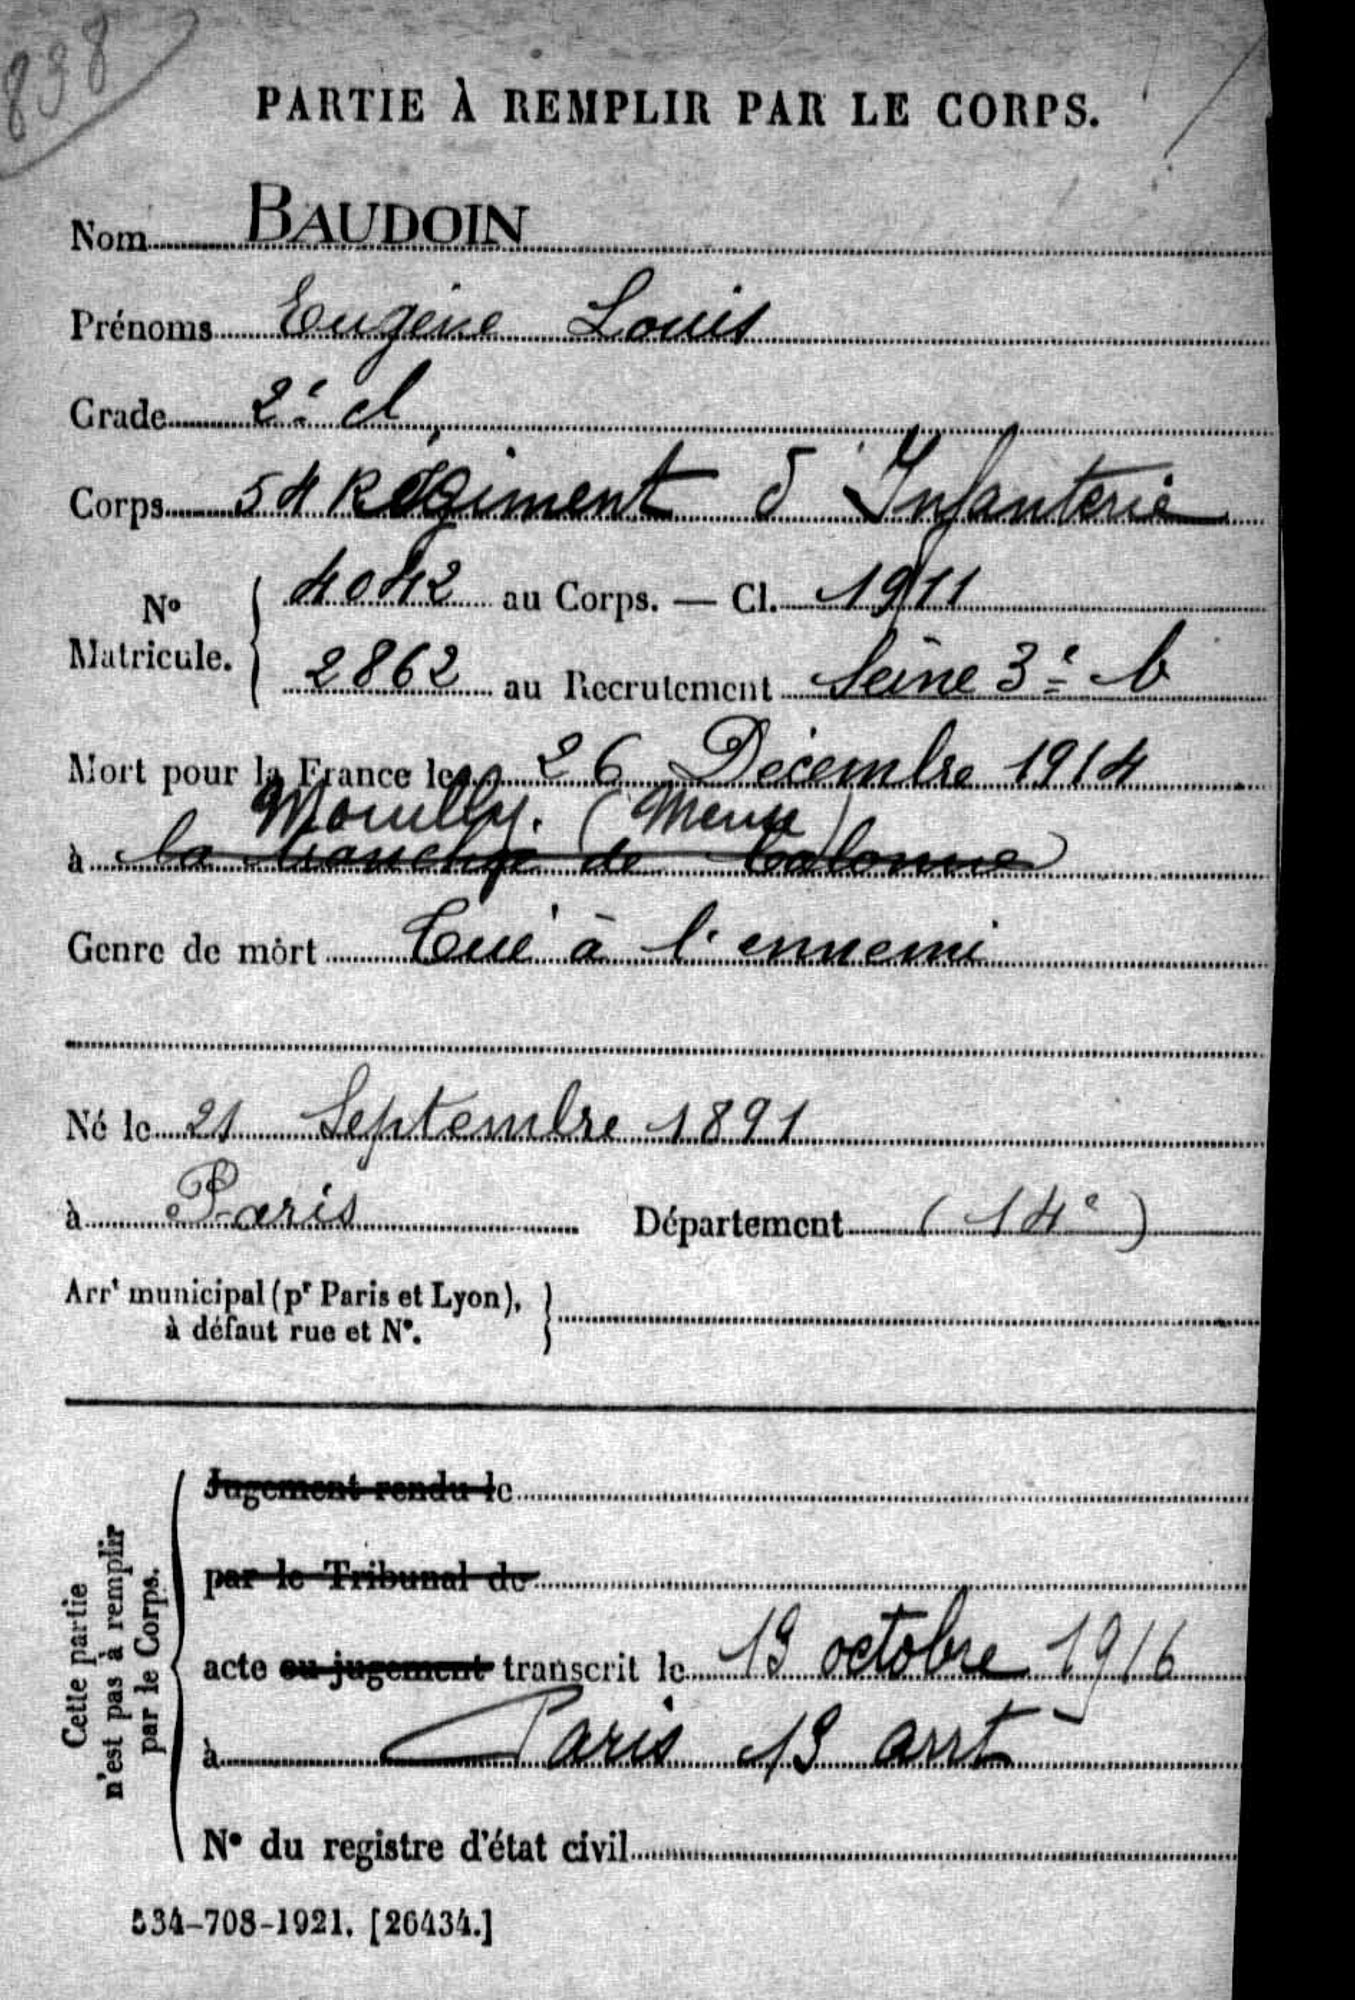 838
PARTIE À REMPLIR PAR LE CORPS.
Nom BAUDOIN
Prénoms Eugène Louis
Grade 2e cl
Corps 54 Régiment d'Infanterie
No Matricule. { 4042 au Corps. — Cl. 1911
2862 au Recrutement Seine 3e b
Mort pour la France le 26 Décembre 1914
Mouilly. (Meuse)
à la tranchée de Calonne
Genre de mort Tué à l'ennemi
Né le 21 Septembre 1891
à Paris Département (14e)
Arrt municipal (pr Paris et Lyon), à défaut rue et No. }
Cette partie n'est pas à remplir par le Corps. {
Jugement rendu le
par le Tribunal de
acte ou jugement transcrit le 13 octobre 1916
à Paris 13 arrt
No du registre d'état civil
534-708-1921. [26434.]